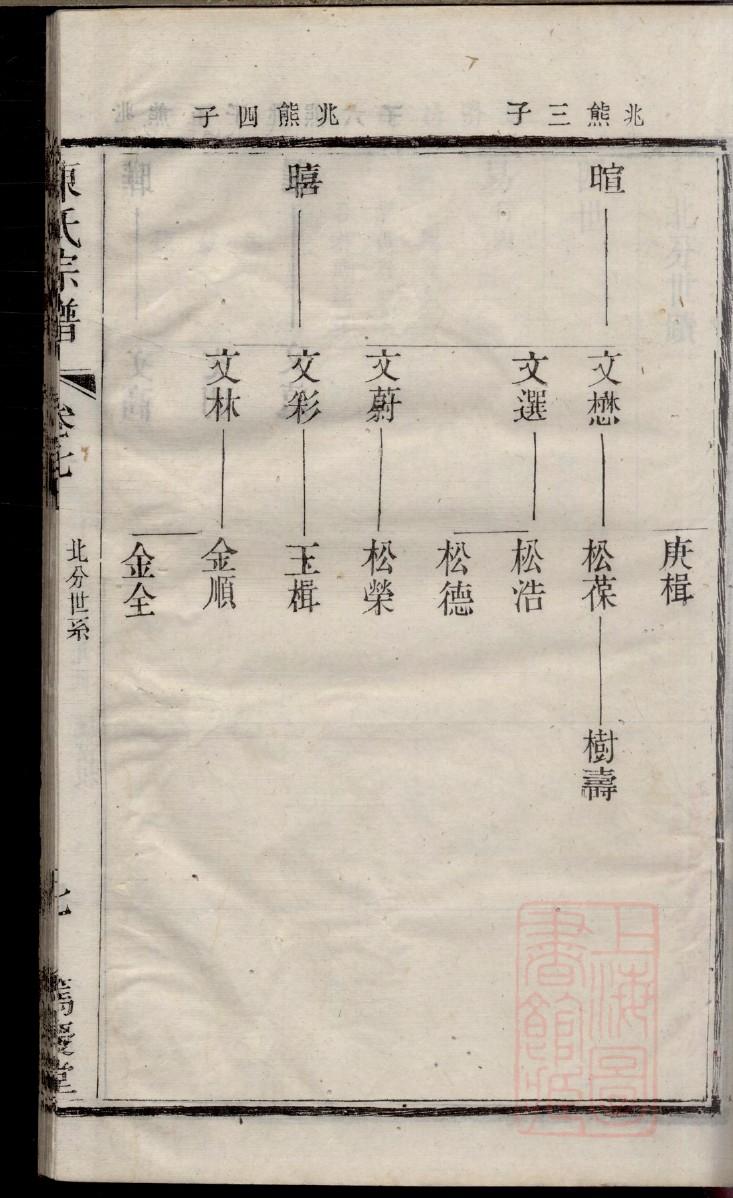 兆熊三子
兆熊四子
暄
暿
文懋
文選
文蔚
文彩
文林
庚楫
松葆
松浩
松德
松榮
玉楫
金順
金全
樹壽
陳氏宗譜
卷七
北分世系
七
篤慶堂
上海圖
書館藏